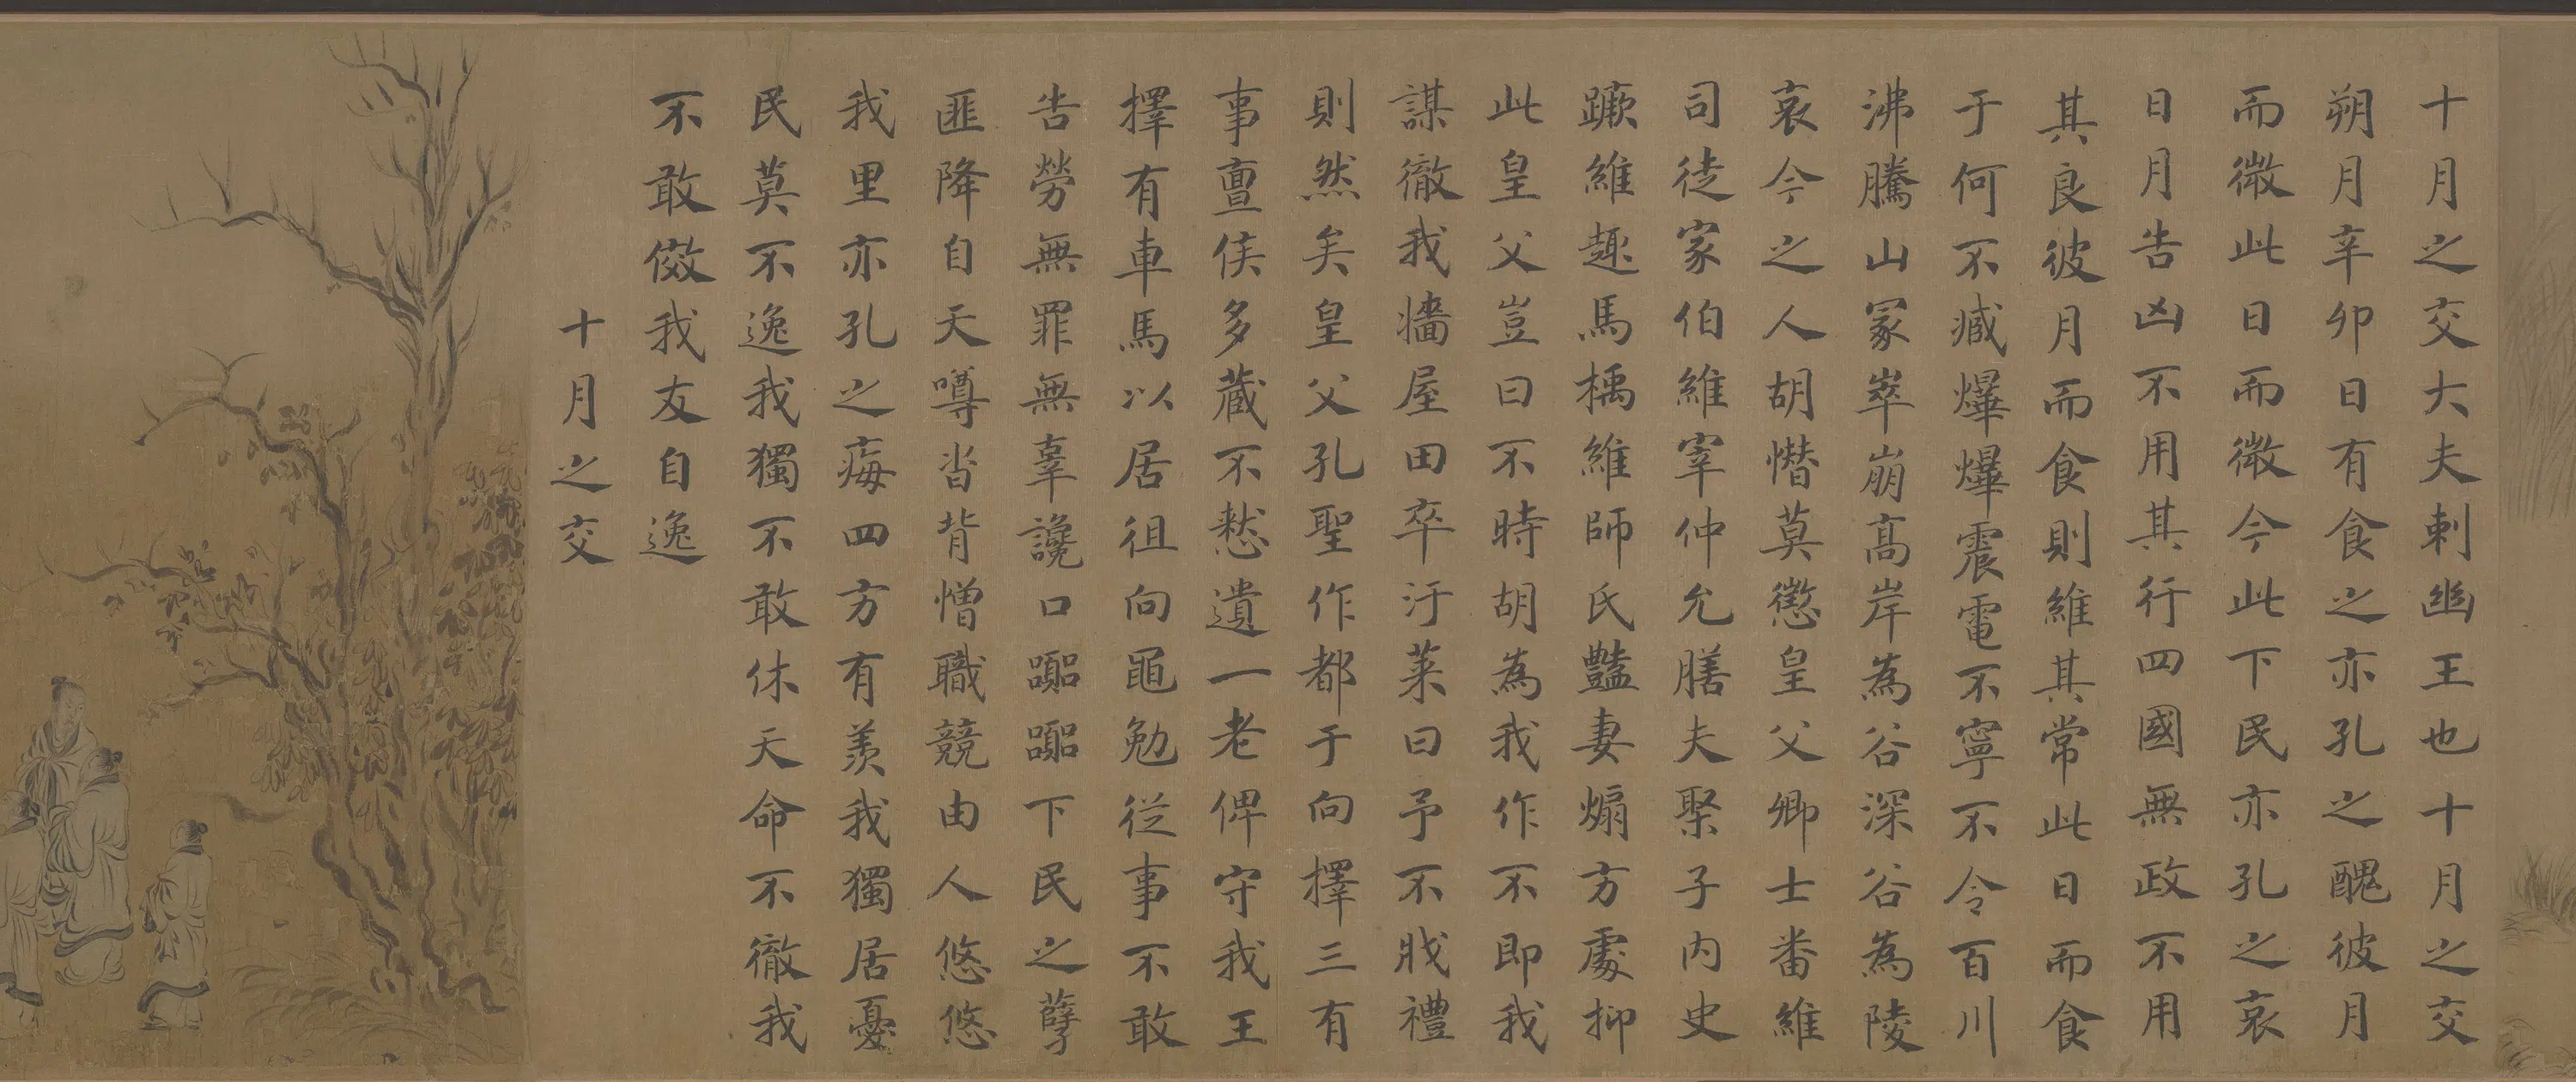 十月之交大夫刺幽王也十月之交
朔月辛卯日有食之亦孔之醜彼月
而微此日而微今此下民亦孔之哀
日月告凶不用其行四國無政不用
其良彼月而食則維其常此日而食
于何不臧爗爗震電不寧不令百川
沸騰山冢崒崩高岸為谷深谷為陵
哀今之人胡憯莫懲皇父卿士番維
司徒家伯維宰仲允膳夫棸子內史
蹶維趣馬楀維師氏豔妻煽方處抑
此皇父豈曰不時胡為我作不即我
謀徹我牆屋田卒汙萊曰予不戕禮
則然矣皇父孔聖作都于向擇三有
事亶侯多蔵不憖遺一老俾守我王
擇有車馬以居徂向黽勉從事不敢
告勞無罪無辜讒口嘂嘂下民之孽
匪降自天噂沓背憎職競由人悠悠
我里亦孔之痗四方有羨我獨居憂
民莫不逸我獨不敢休天命不徹我
不敢傚我友自逸
十月之交